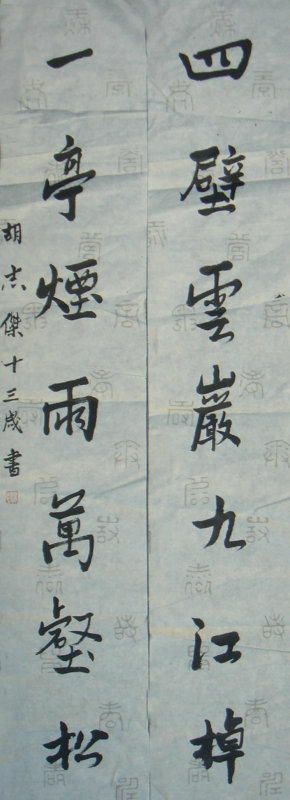 四壁雲巖九江棹
一亭煙雨萬壑松
胡志傑十三歲書